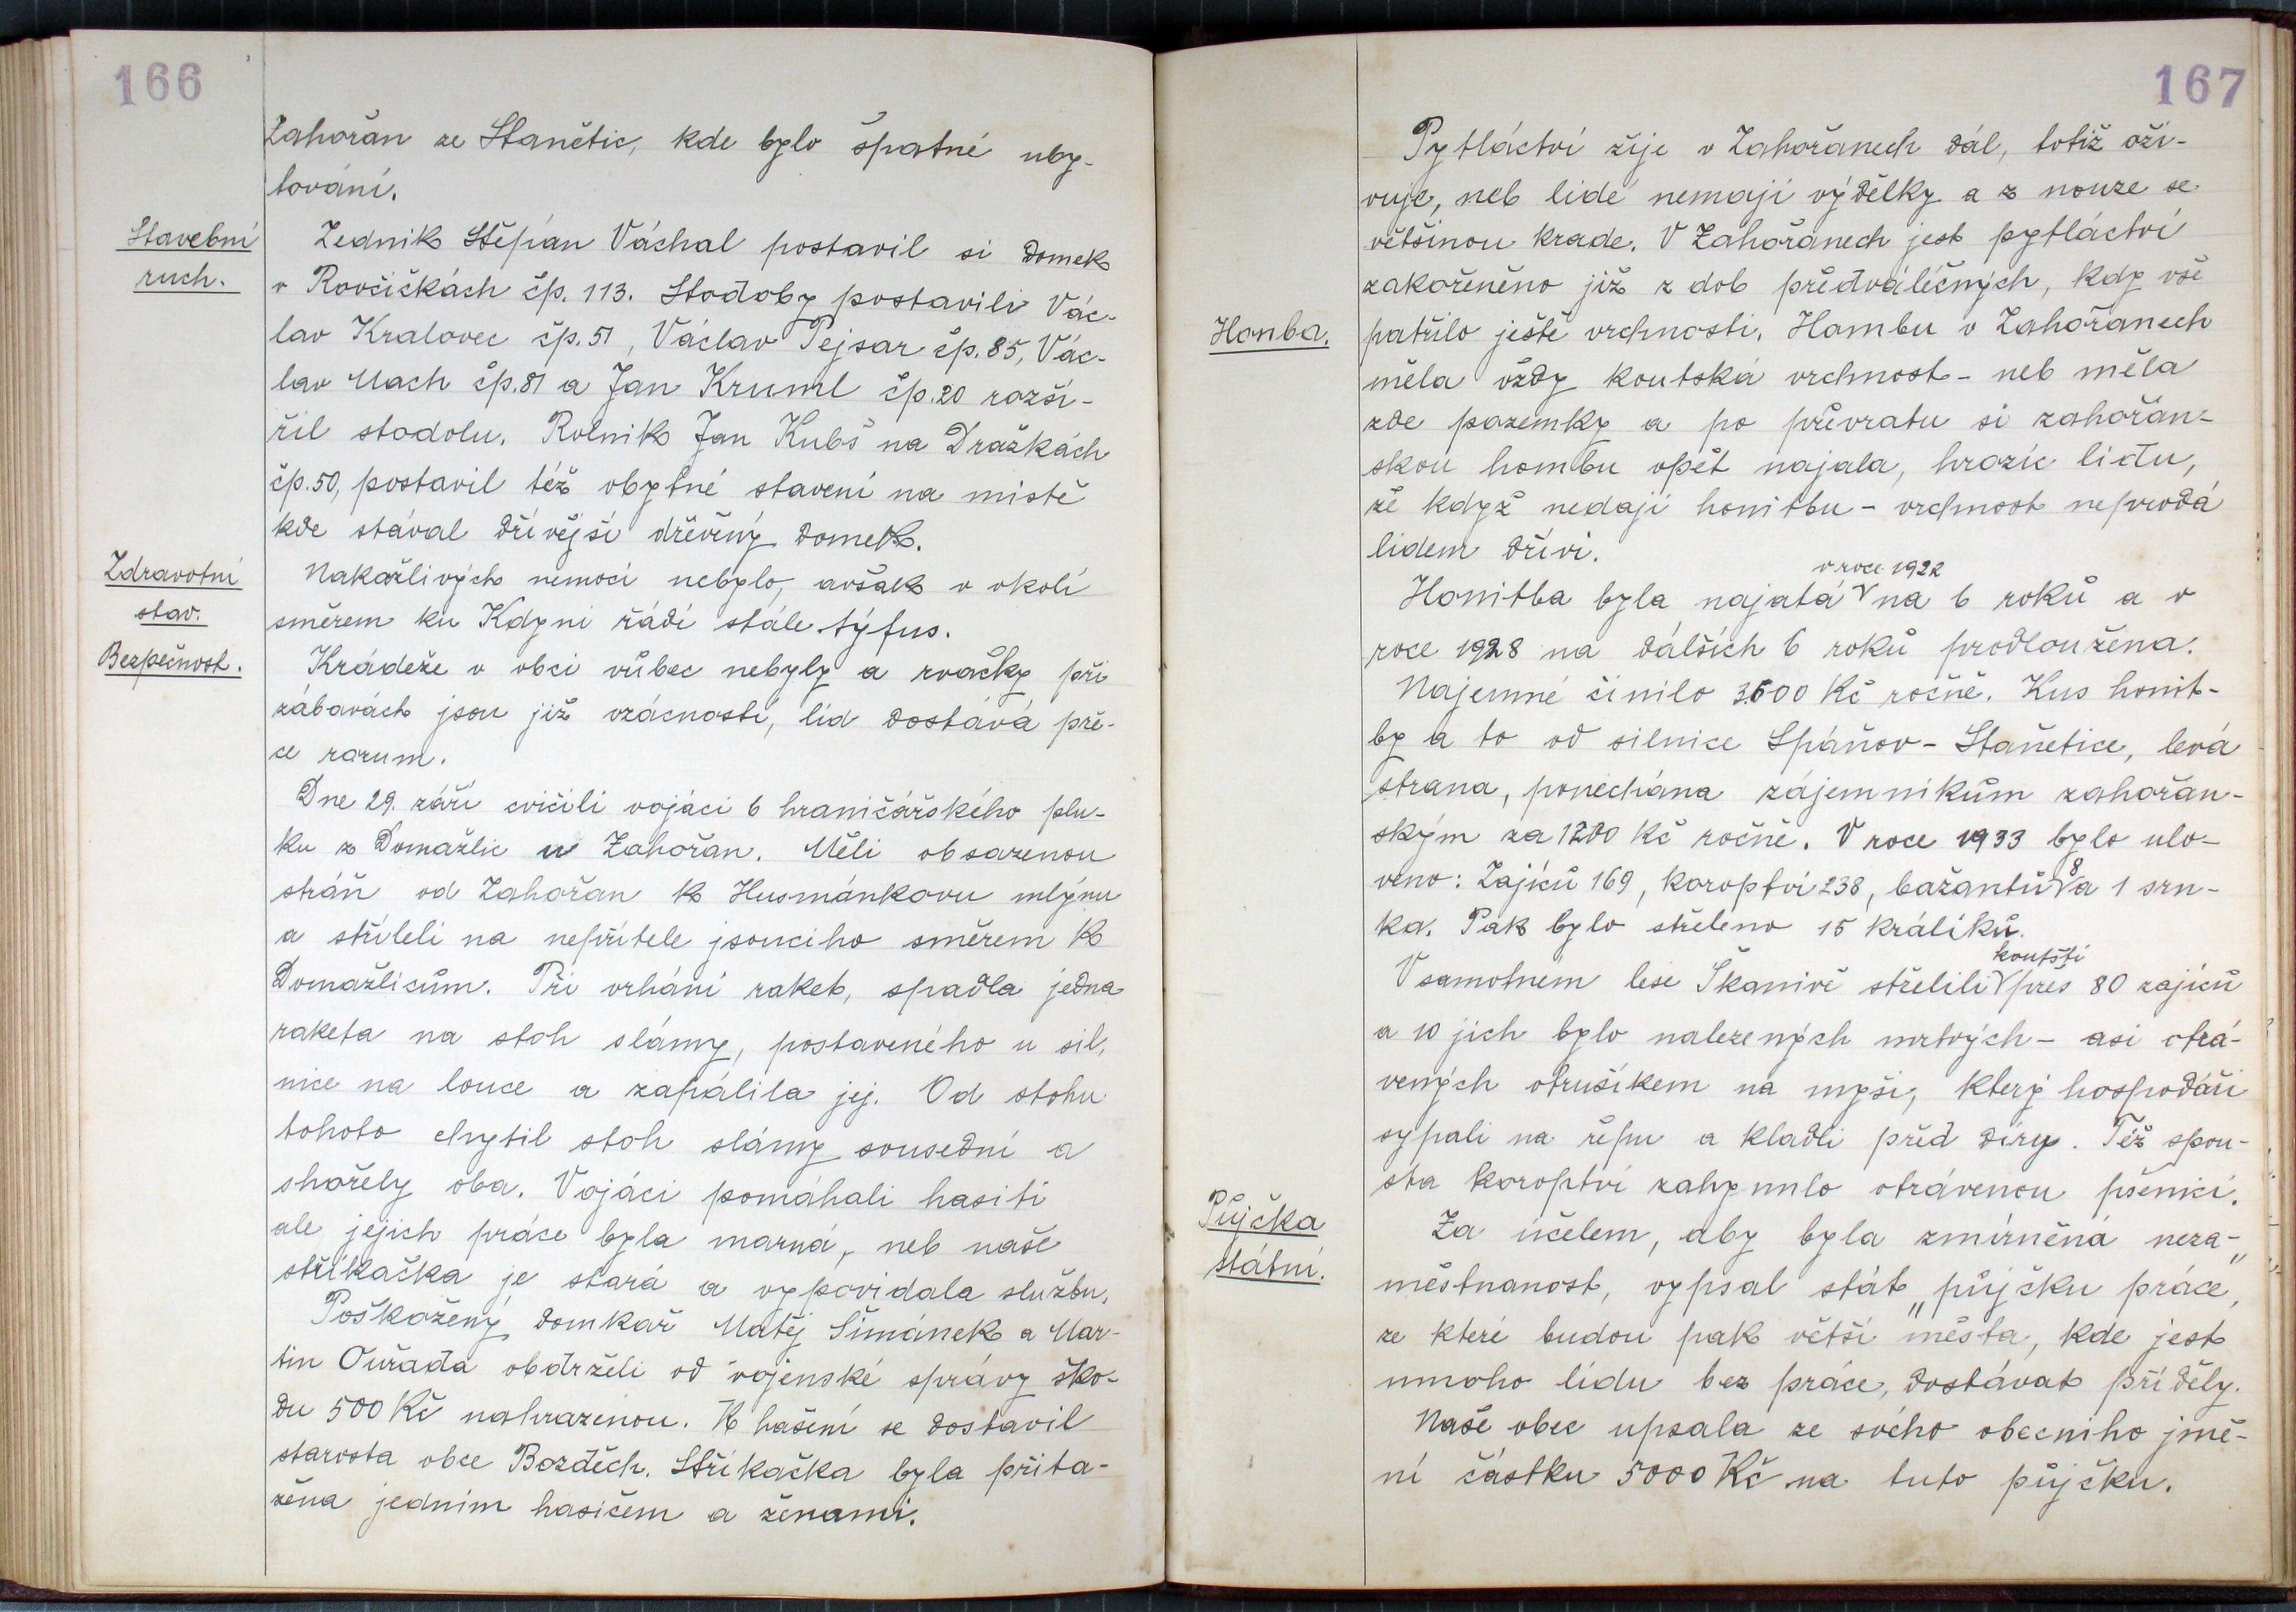 166
Zahořan ze Stanětic, kde bylo špatné uby-
tování.
Stavební
ruch.
Zedník Štěpán Váchal postavil si domek
v Rovčičkách čp. 113. Stodoby postavili Vác-
lav Kralovec čp. 51, Václav Pejsar čp. 85, Vác-
lav Mach čp. 81 a Jan Kruml čp. 20 rozší-
řil stodolu. Rolník Jan Kubš na Dražkách
čp. 50, postavil též obytné stavení na místě
kde stával dřívější dřevěný domek.
Zdravotní
stav.
Nakažlivých nemocí nebylo, avšak v okolí
směrem ku Kdyni řádí stále týfus.
Bezpečnost.
Krádeže v obci vůbec nebyly a rvačky při
zábavách jsou již vzácností, lid dostává pře-
ce rozum.
Dne 29. září cvičili vojáci 6 hraničářského plu-
ku z Domažlic u Zahořan. Měli obsazenou
stráň od Zahořan k Husmánkovu mlýnu
a stříleli na nepřítele jsoucího směrem k
Domažlicům. Při vrhání raket, spadla jedna
raketa na stoh slámy, postaveného u sil,
nice na louce a zapálila jej. Od stohu
tohoto chytil stoh slámy sousední a
shořely oba. Vojáci pomáhali hasiti
ale jejich práce byla marná, neb naše
stříkačka je stará a vypovídala službu.
Poškozený domkář Matěj Šimánek a Mar-
tin Ouřada obdrželi od vojenské správy ško-
du 500 Kč nahrazenou. K hašení se dostavil
starosta obce Bozděch. Stříkačka byla přita-
žena jedním hasičem a ženami.
167
Pytláctví žije v Zahořanech dál, totiž oži-
vuje, neb lidé nemají výdělky a z nouze se
většinou krade. V Zahořanech jest pytláctví
zakořeněno již z dob předválečných, kdy vše
Honba.
patřilo ještě vrchnosti. Hombu v Zahořanech
měla vždy koutská vrchnost - neb měla
zde pozemky a po převratu si zahořan-
skou hombu opět najala, hrozíc lidu,
že když nedají honitbu - vrchnost neprodá
lidem dříví.
v roce 1922
Honitba byla najatá na 6 roků a v
roce 1928 na dalších 6 roků prodloužena.
Najemné činilo 3600 Kč ročně. Kus honit-
by a to od silnice Spáňov - Staňetice, levá
strana, ponechána zájemníkům zahořan-
ským za 1200 Kč ročně. V roce 1933 bylo ulo-
veno: Zajíců 169, koroptví 238, bažantů 8 a 1 srn-
ka. Pak bylo střeleno 15 králíků.
koutští
V samotnem lese Škanivě střelili přes 80 zajíců
a 10 jich bylo nalezených mrtvých - asi otrá-
vených otrušíkem na myši, který hospodáři
sypali na řepu a kladli před díry. Též spou-
sta koroptví zahynulo otrávenou pšenicí.
Půjčka
státní.
Za účelem, aby byla zmírněná neza-
městnanost, vypsal stát „půjčku práce",
ze které budou pak větší města, kde jest
mnoho lidu bez práce, dostávat příděly.
Naše obec upsala ze svého obecního jmě-
ní částku 5000 Kč na tuto půjčku.